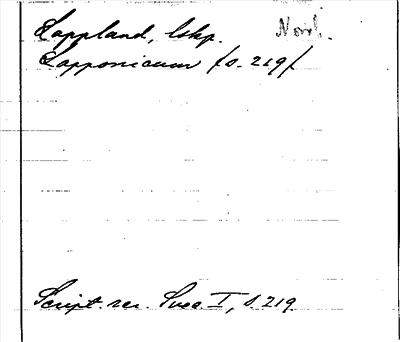 Lappland, lskp. Norrl.
Lapponicum /s. 219/
Script. rer. Svec. I, s. 219.